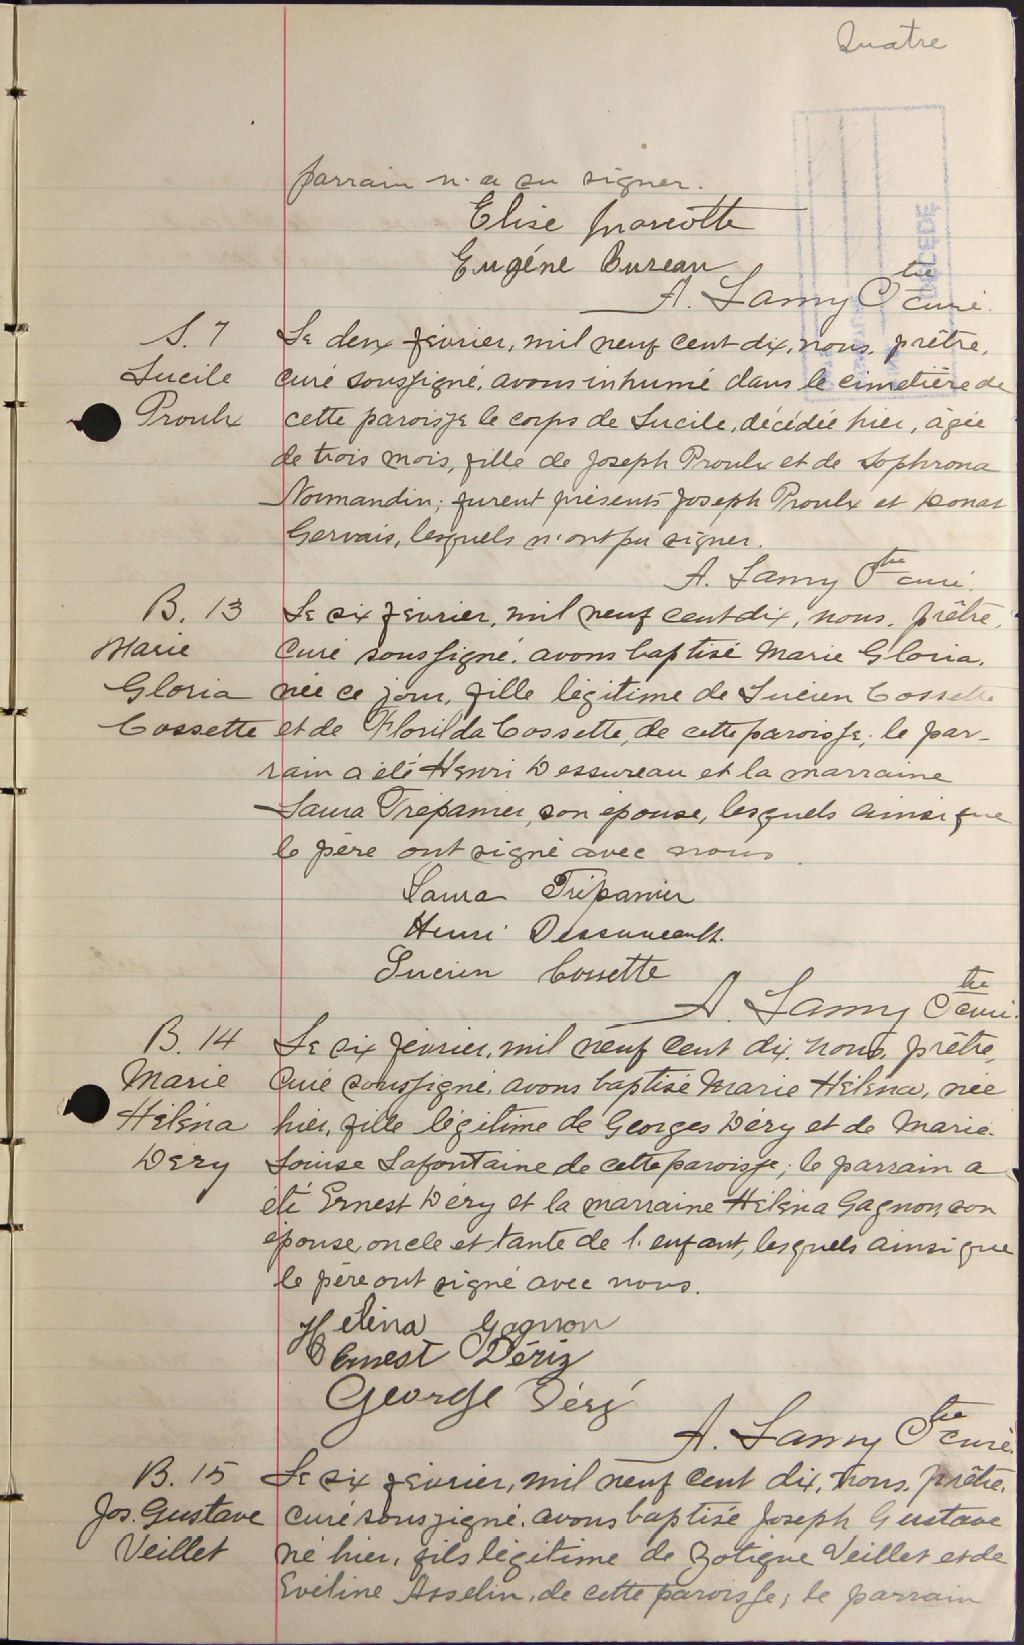 Quatre
parrain n'a su signer.
Elise Marcotte
Eugéne Bureau
A. Lamy Ptre curé.
S. 7
Lucile
Proulx
Le deux février, mil neuf cent dix, nous, prêtre,
curé soussigné, avons inhumé dans le cimetière de
cette paroisse le corps de Lucile, décédée hier, âgée
de trois mois, fille de Joseph Proulx et de Sophrona
Normandin; furent présents Joseph Proulx et Donat
Gervais, lesquels n'ont pu signer.
A. Lamy Ptre curé.
B. 13
Marie
Gloria
Cossette
Le six février, mil neuf cent dix, nous, prêtre,
curé soussigné, avons baptisé Marie Gloria,
née ce jour, fille légitime de Lucien Cossette
et de Florilda Cossette, de cette paroisse; le par-
rain a été Henri Dessureau et la marraine
Laura Trépanier, son épouse, lesquels ainsi que
le père ont signé avec nous.
Laura Trépanier
Henri Dessureault.
Lucien Cossette
A. Lamy Ptre curé.
B. 14
Marie
Héléna
Déry
Le six février, mil neuf cent dix, nous, prêtre,
curé soussigné, avons baptisé Marie Héléna, née
hier, fille légitime de Georges Déry et de Marie-
Louise Lafontaine de cette paroisse; le parrain a
été Ernest Déry et la marraine Héléna Gagnon, son
épouse, oncle et tante de l'enfant, lesquels ainsi que
le père ont signé avec nous.
Helena Gagnon
Ernest Dériz
George Déry
A. Lamy Ptre curé.
B. 15
Jos. Gustave
Veillet
Le six février, mil neuf cent dix, nous, prêtre,
curé soussigné, avons baptisé Joseph Gustave
né hier, fils légitime de Zotique Veillet et de
Evéline Asselin, de cette paroisse; le parrain